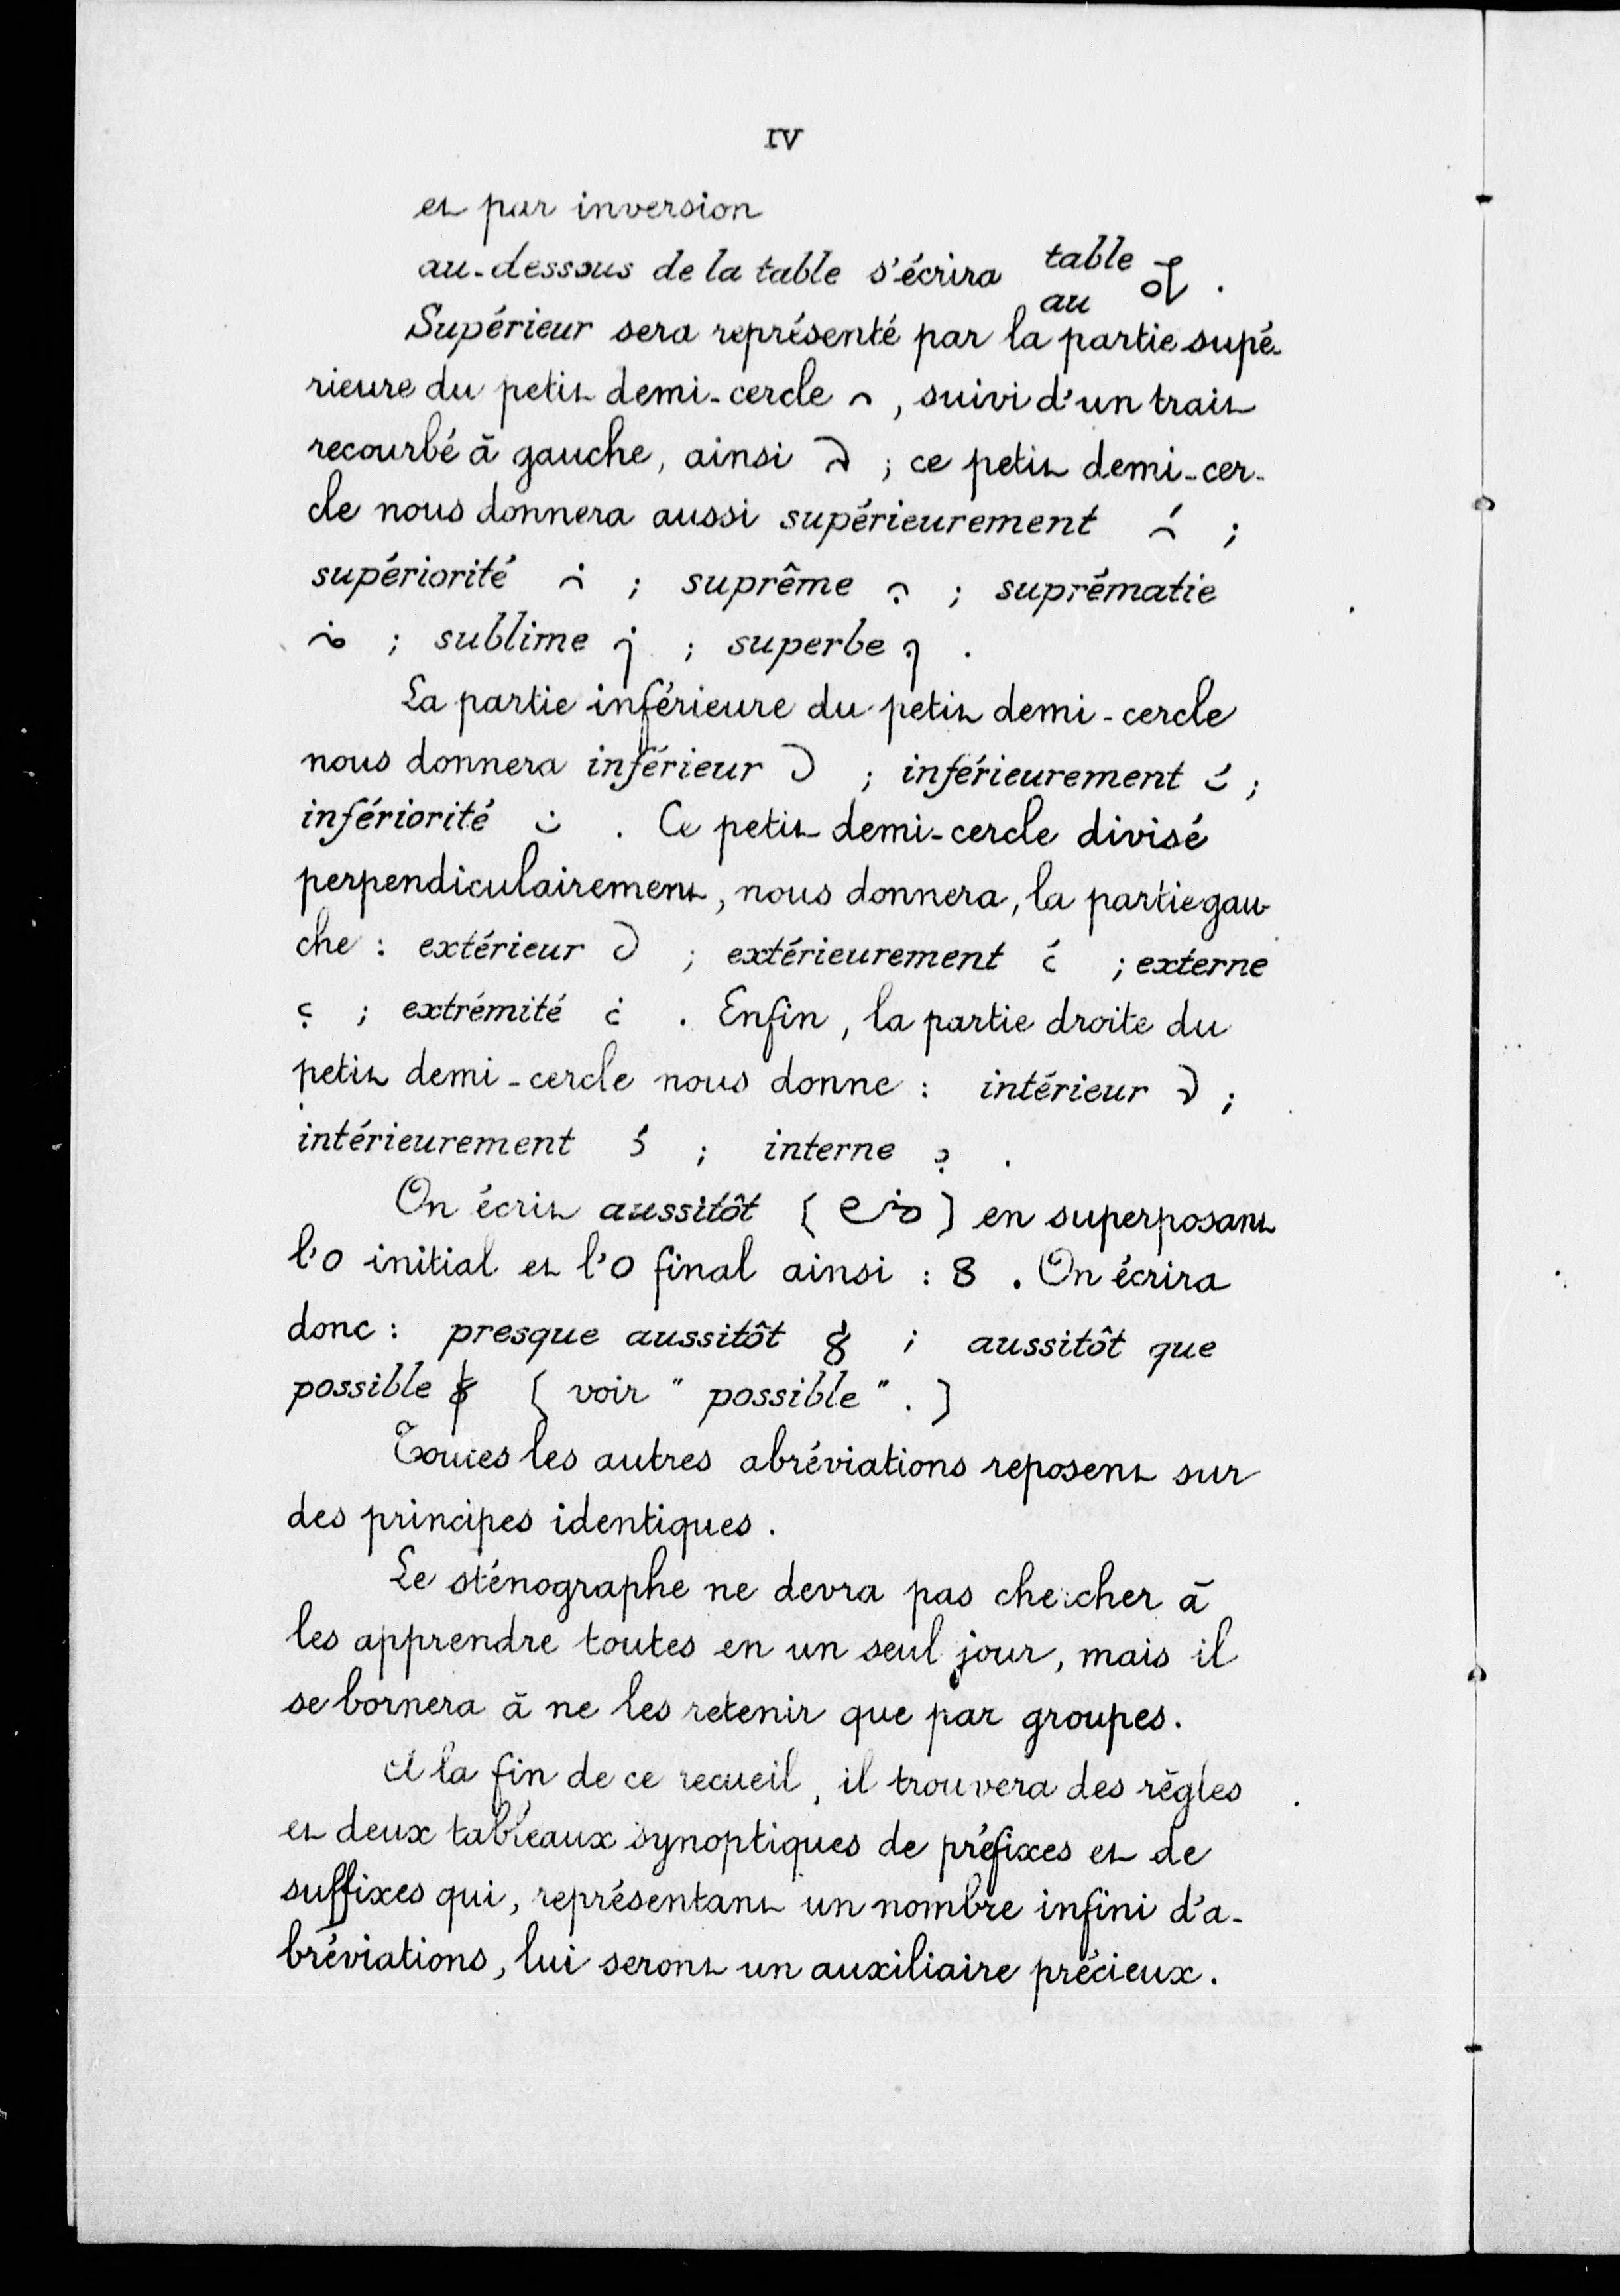 IV
et par inversion
au-dessous de la table s'écrira table
au
Supérieur sera représenté par la partie supé-
rieure du petit demi-cercle , suivi d'un trait
recourbé à gauche, ainsi ; ce petit demi-cer-
cle nous donnera aussi supérieurement ;
supériorité ; suprême ; suprématie
; sublime ; superbe .
La partie inférieure du petit demi-cercle
nous donnera inférieur ; inférieurement ;
infériorité . Ce petit demi-cercle divisé
perpendiculairement, nous donnera, la partie gau-
che : extérieur ; extérieurement ; externe
; extrémité . Enfin, la partie droite du
petit demi-cercle nous donne : intérieur ;
intérieurement ; interne .
On écrit aussitôt ( ) en superposant
l'o initial et l'o final ainsi : 8 . On écrira
donc : presque aussitôt ; aussitôt que
possible ( voir " possible " . )
Toutes les autres abréviations reposent sur
des principes identiques .
Le sténographe ne devra pas chercher à
les apprendre toutes en un seul jour, mais il
se bornera à ne les retenir que par groupes.
A la fin de ce recueil, il trouvera des règles
et deux tableaux synoptiques de préfixes et de
suffixes qui, représentant un nombre infini d'a-
bréviations, lui seront un auxiliaire précieux.